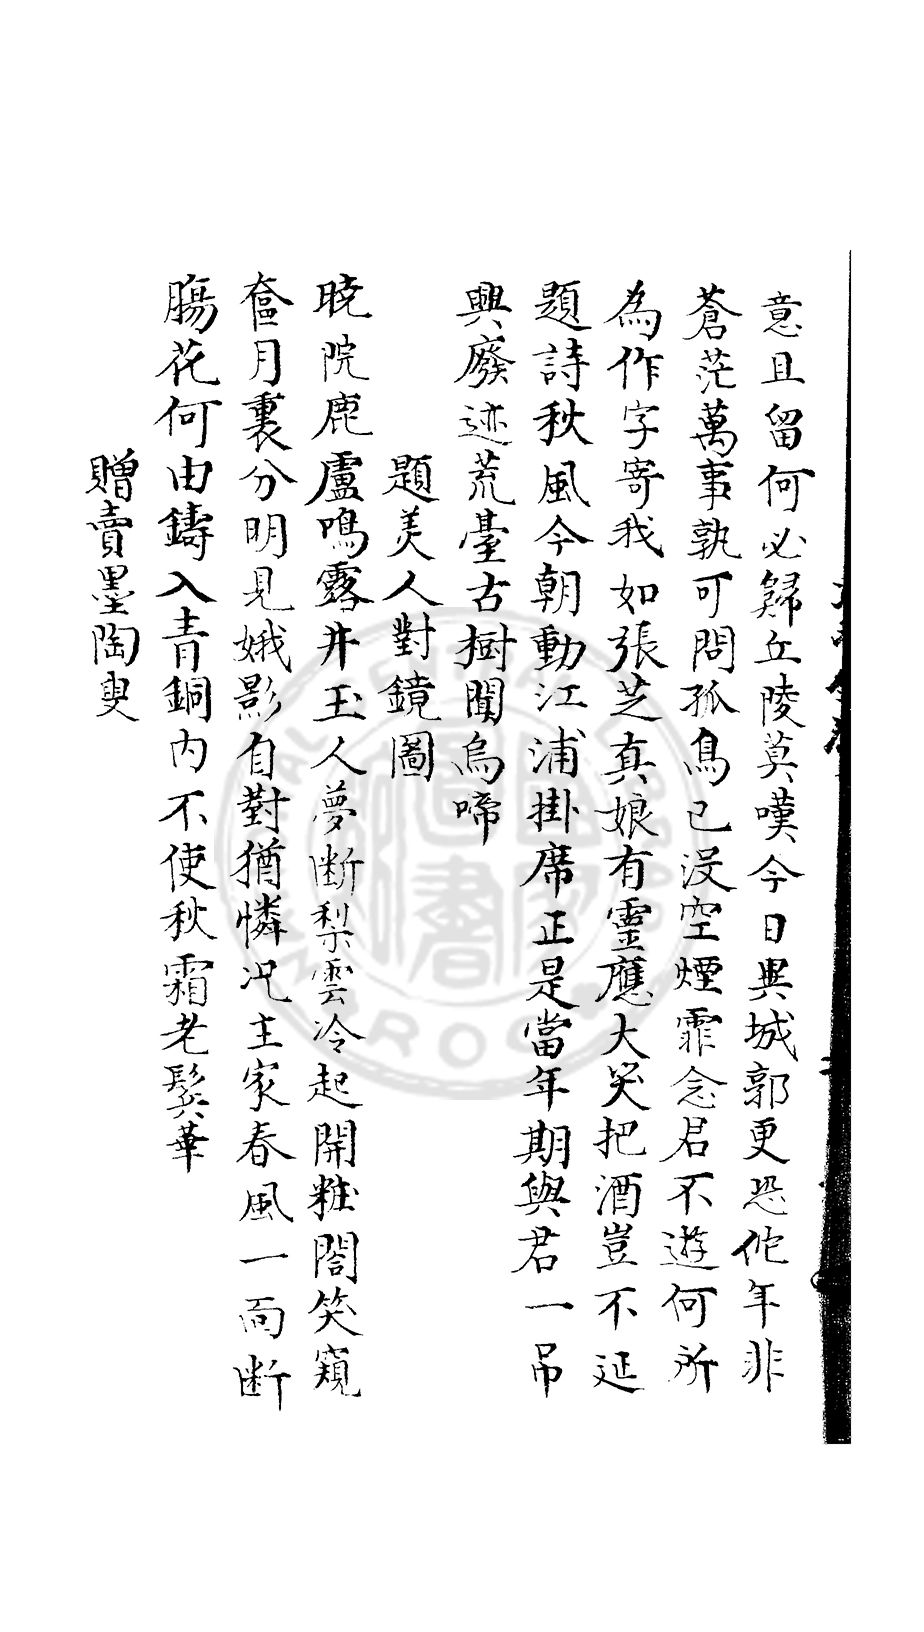 意且留何必歸丘陵莫嘆今日異城郭更恐佗年非
蒼茫萬事孰可問孤鳥已没空煙霏念君不遊何所
為作字寄我如張芝真娘有靈應大笑把酒豈不延
題詩秋風今朝動江浦掛席正是當年期與君一吊
興廢迹荒臺古樹聞烏啼
題美人對鏡圖
曉院鹿盧鳴露井玉人夢断梨雲冷起開粧閣笑窺
奩月裏分明見娥影自對猶憐况主家春風一面断
腸花何由鑄入青銅内不使秋霜老鬂華
贈賣墨陶叟